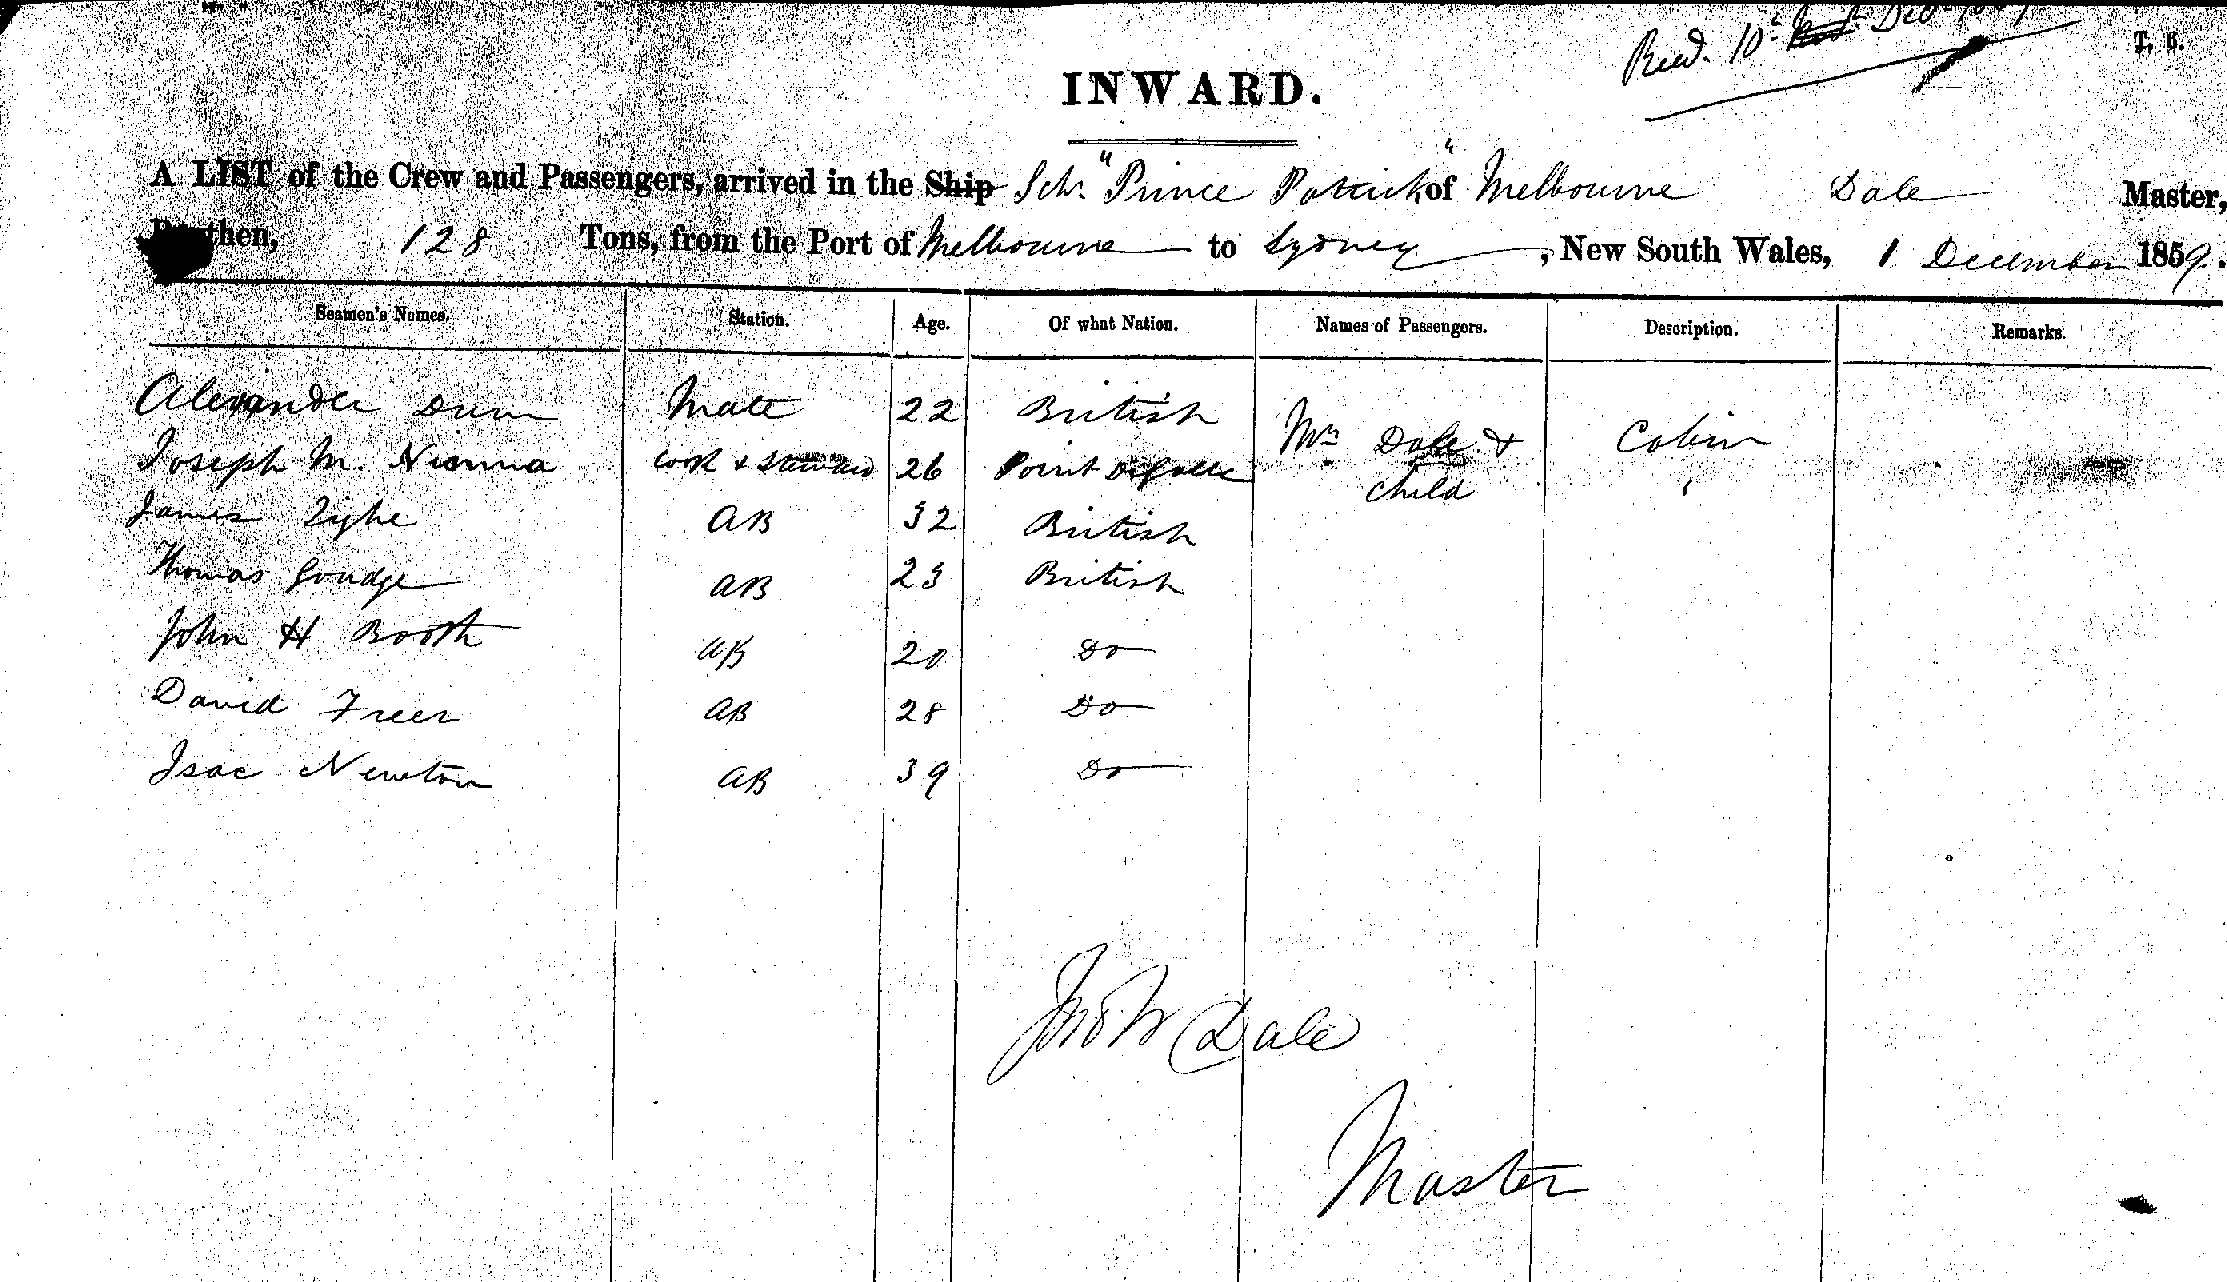 Recd. 10th Decr
T. B.
INWARD.
A LIST of the Crew and Passengers, arrived in the Ship Schr. "Prince Patrick" of Melbourne Dale Master,
Burthen, 128 Tons, from the Port of Melbourne to Sydney, New South Wales, 1 December 1859.
Seamen's Names. Station. Age. Of what Nation. Names of Passengers. Description. Remarks.
Alexander Dunn Mate 22 British Mrs Dale & Cabin
Joseph M. Cook & Steward 26 Point child "
James Tighe AB 32 British
Thomas Goudge AB 23 British
John H Booth AB 20 Do
David Freer AB 28 Do
Isac Newton AB 39 Do
Jno W Dale
Master